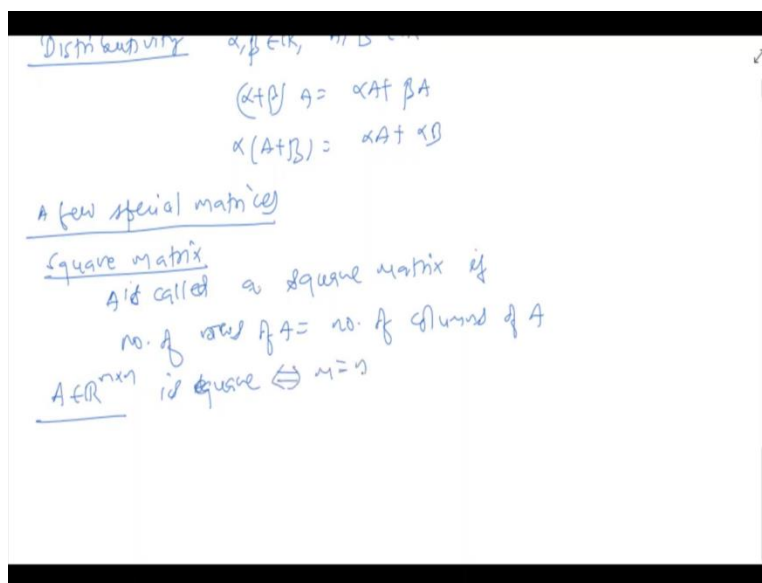 Distributivity α,β∈R, A,B
(α+β) A= αA+ βA
α(A+B)= αA+ αB
A few special matrices
Square matrix
A is called a square matrix if
no. of rows of A= no. of columns of A
A∈R^{m×n} is square ⇔ m=n